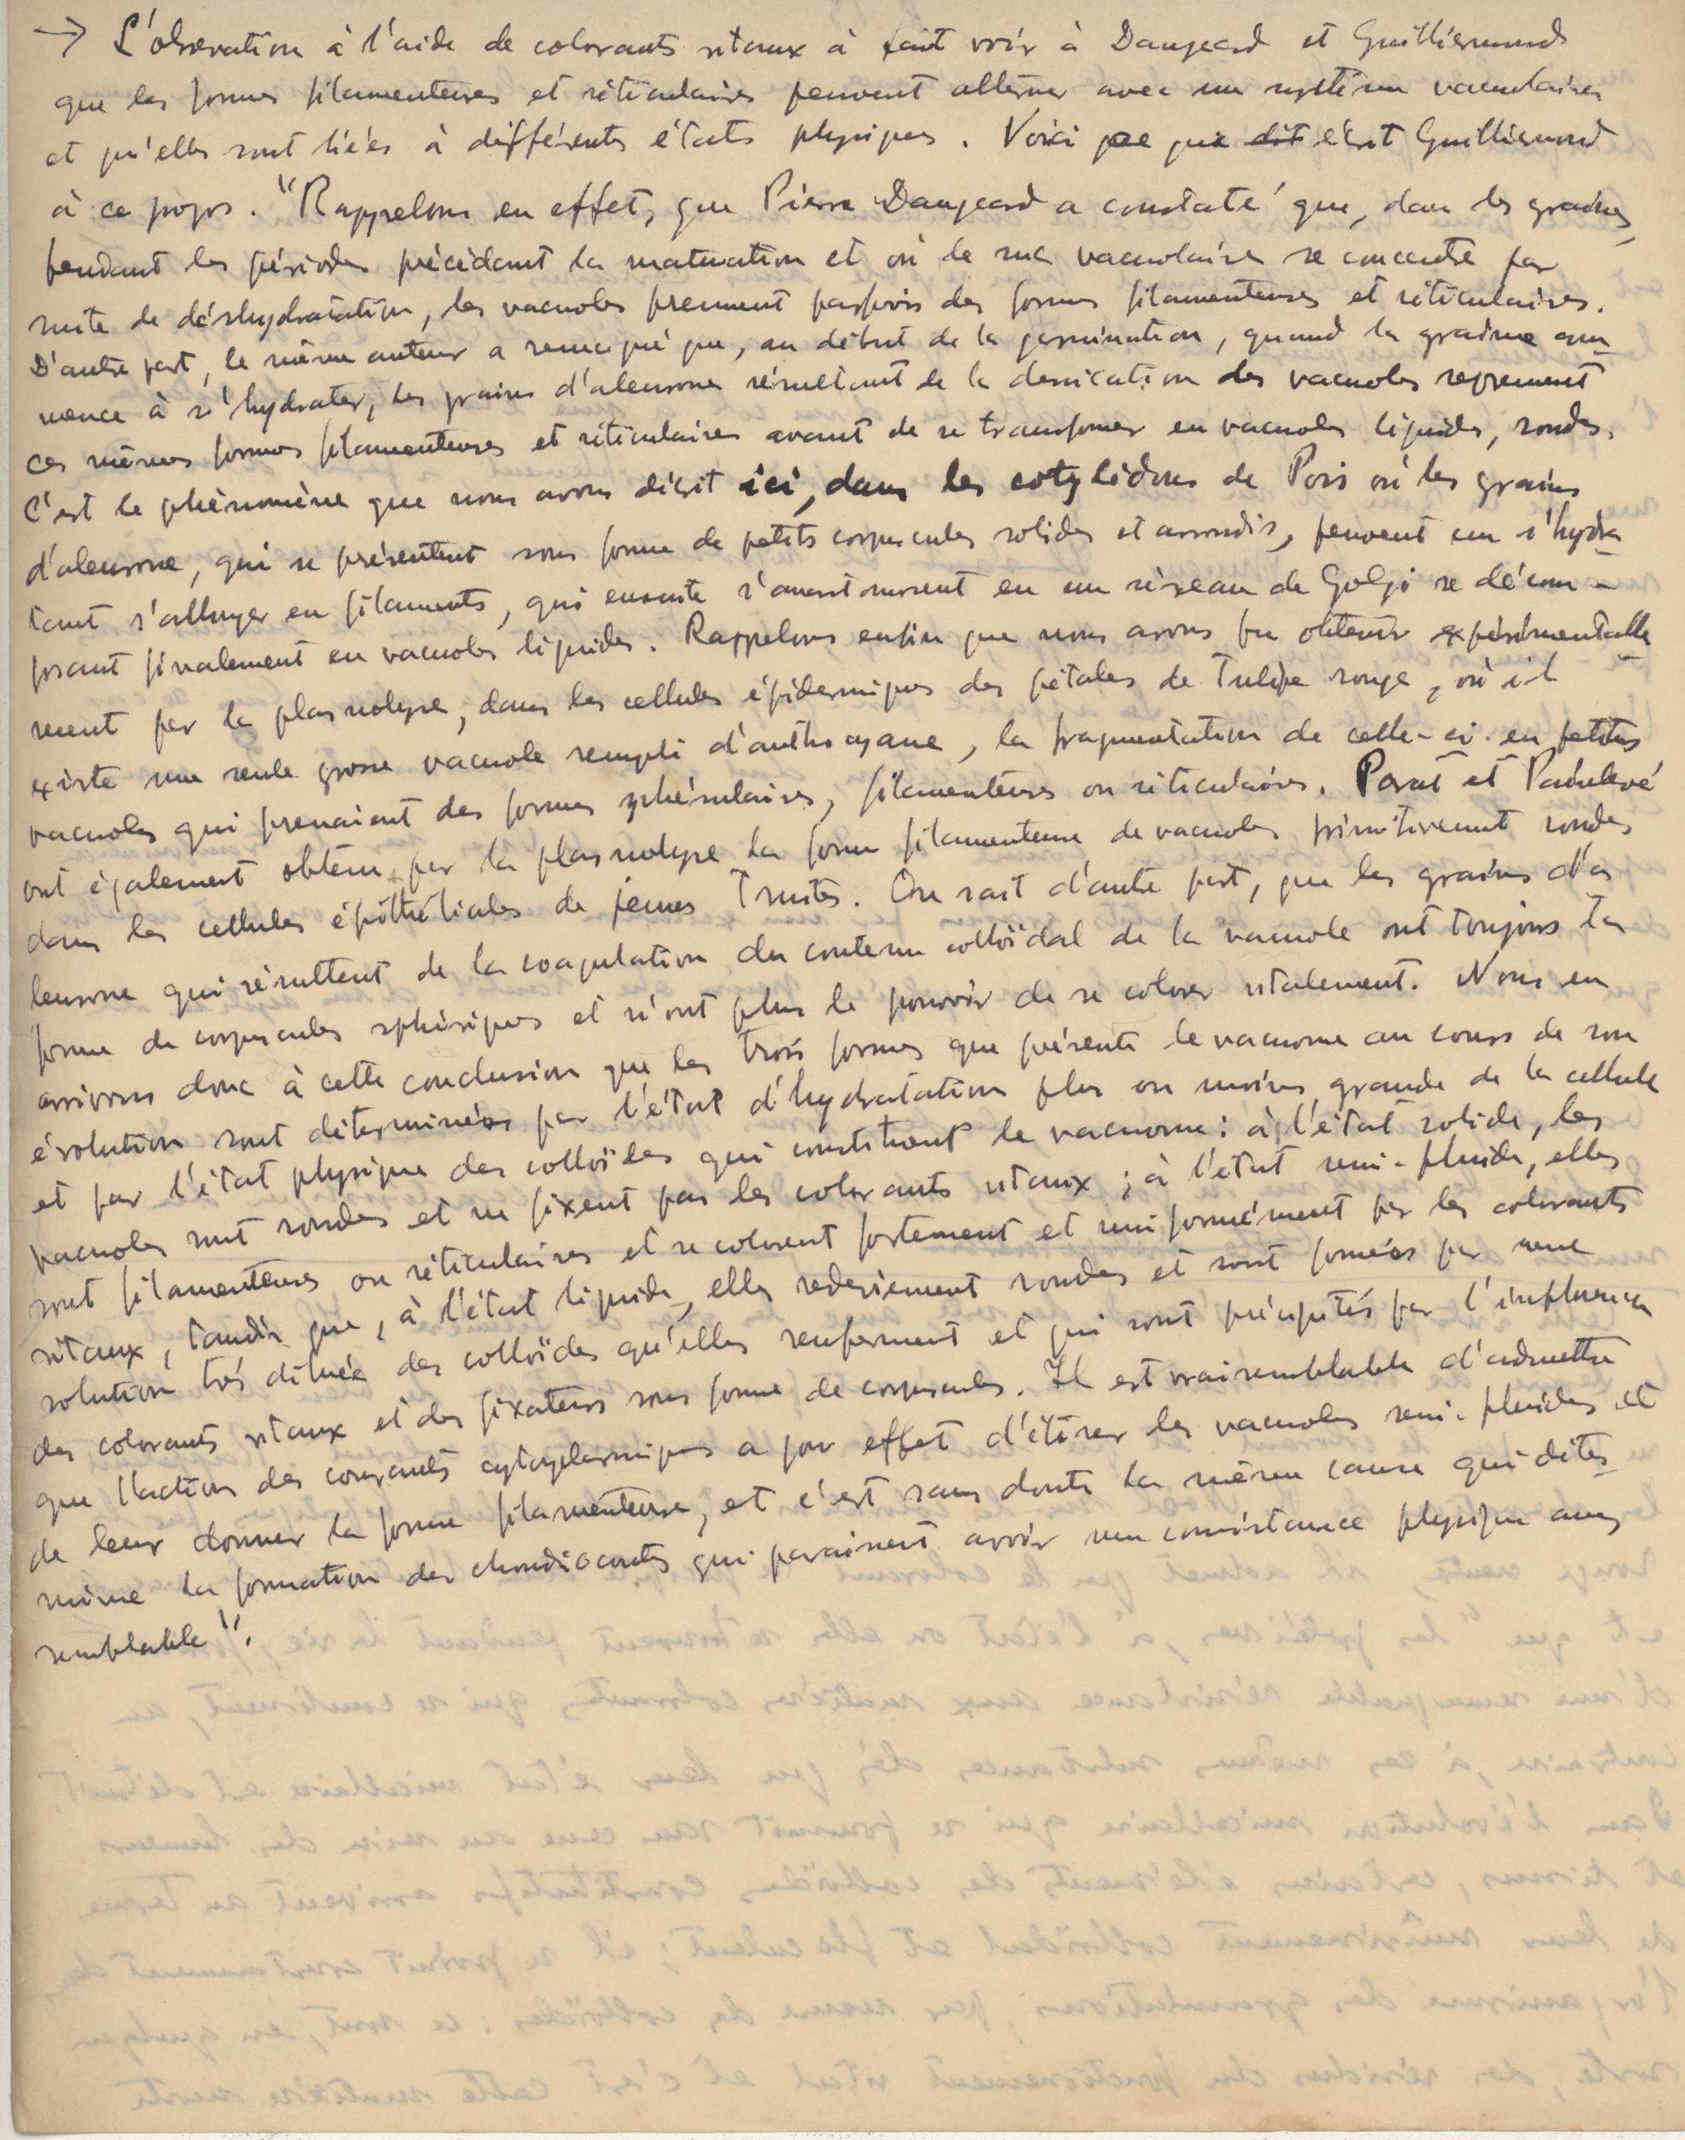 → L'observation à l'aide de colorants vitaux à fait voir à Dangeard et Guilliermond
que les formes filamenteuses et réticulaires peuvent alterner avec un système vacuolaire
et qu'elles sont liées à différents états physiques. Voici ce que dit écrit Guilliermond
à ce propos. "Rappelons en effet, que Pierre Dangeard a constaté que, dans les graines,
pendant les périodes précédant la maturation et où le suc vacuolaire se concentre par
suite de déshydratation, les vacuoles prennent parfois des formes filamenteuses et réticulaires.
D'autre part, le même auteur a remarqué que, au début de la germination, quand la graine com-
mence à s'hydrater, les grains d'aleurone résultant de la dessication des vacuoles reprennent
ces mêmes formes filamenteuses et réticulaires avant de se transformer en vacuoles liquides, rondes.
C'est le phénomène que nous avons décrit ici, dans les cotylédons de Pois où les grains
d'aleurone, qui se présentent sous forme de petits corpuscules solides et arrondis, peuvent en s'hydra-
tant s'allonger en filaments, qui ensuite s'anastomosent en un réseau de Golgi se décom-
posant finalement en vacuoles liquides. Rappelons enfin que nous avons pu obtenir expérimentalle-
ment par la plasmolyse, dans les cellules épidermiques des pétales de Tulipe rouge, où il
existe une seule grosse vacuole rempli d'anthocyane, la fragmentation de celle-ci en petites
vacuoles qui prenaient des formes sphérulaires, filamenteuses ou réticulaires. Parat et Painlevé
ont également obtenu par la plasmolyse la forme filamenteuse de vacuoles primitivement rondes
dans les cellules épithéliales de jeunes Truites. On sait d'autre part, que les grains d'a
leurone qui résultent de la coagulation du contenu colloïdal de la vacuole ont toujours la
forme de corpuscules sphériques et n'ont plus le pouvoir de se colorer vitalement. Nous en
arrivons donc à cette conclusion que les trois formes que présente le vacuome au cours de son
évolution sont déterminées par l'état d'hydratation plus ou moins grande de la cellule
et par l'état physique des colloïdes qui constituent le vacuome : à l'état solide, les
vacuoles sont rondes et ne fixent pas les colorants vitaux ; à l'état semi-fluide, elles
sont filamenteuses ou réticulaires et se colorent fortement et uniformément par les colorants
vitaux, tandis que, à l'état liquide, elles redeviennent rondes et sont formées par une
solution très diluée des colloïdes qu'elles renferment et qui sont précipités par l'influence
des colorants vitaux et des fixateurs sous forme de corpuscules. Il est vraisemblable d'admettre
que l'action des courants cytoplasmiques a pour effet d'étirer les vacuoles semi-fluides et
de leur donner la forme filamenteuse, et c'est sans doute la même cause qui déter-
mine la formation des chondriocontes qui paraissent avoir une consistance physique assez
semblable".